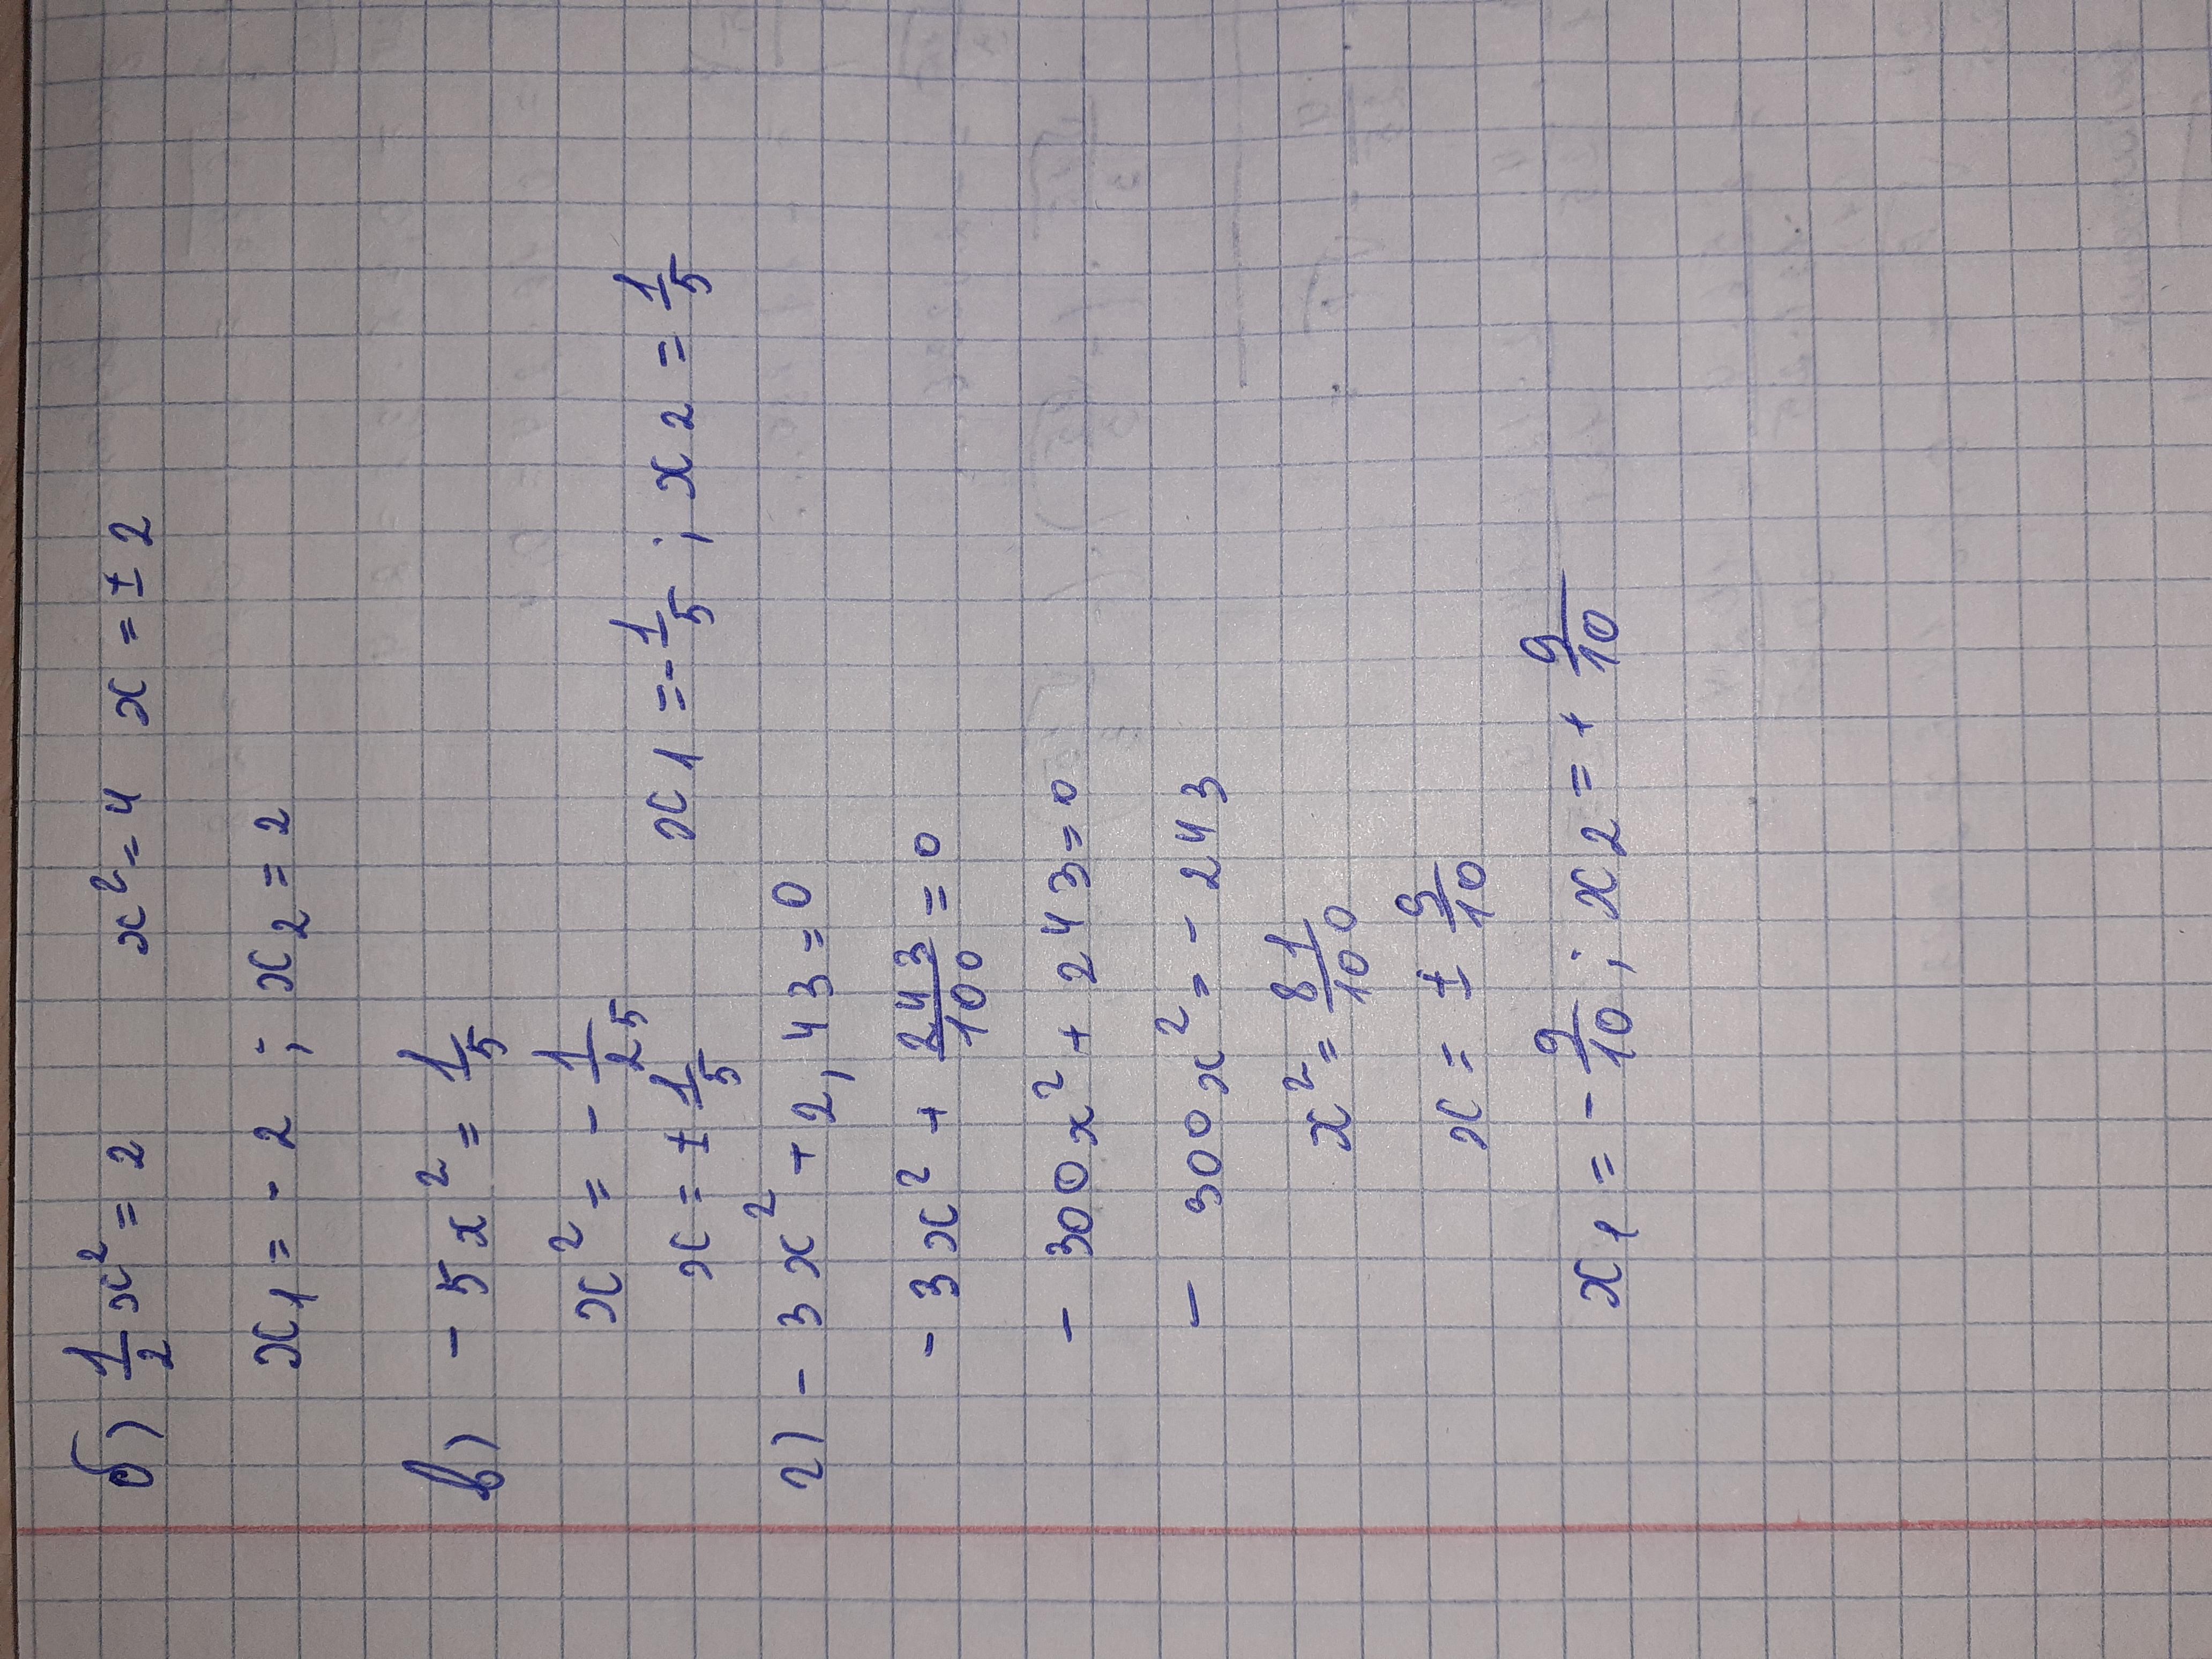 б) 1/2 x² = 2 x² = 4 x = ± 2
x1 = - 2 ; x2 = 2
в) - 5x² = 1/5
x² = - 1/25
x = ± 1/5 x1 = - 1/5 ; x2 = 1/5
г) - 3x² + 2,43 = 0
- 3x² + 243/100 = 0
- 300x² + 243 = 0
- 300x² = - 243
x² = 81/100
x = ± 9/10
x1 = - 9/10 ; x2 = + 9/10